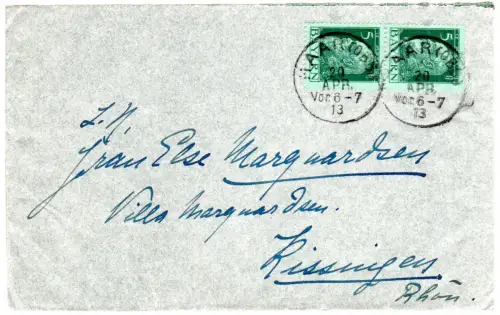 5 5
BAYERN BAYERN
HAAR(OB.) HAAR(OB.)
20 20
APR. APR.
Vor.6-7 Vor.6-7
13 13
Frau Else Marquardsen
Villa Marquardsen.
Kissingen
Rhön.